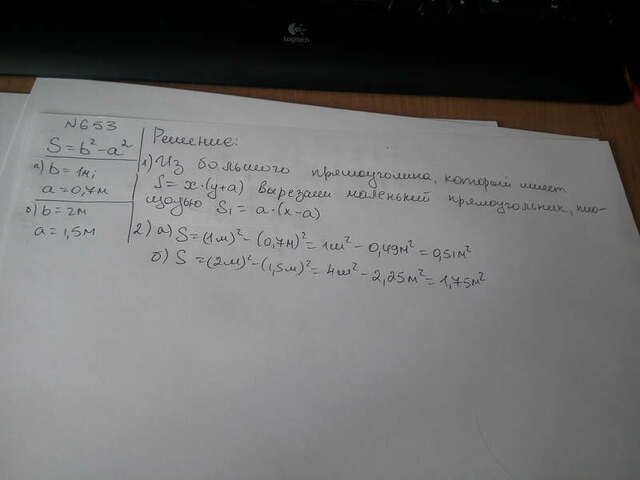 Logitech
N653
S=b²-a²
а) b = 1м;
a = 0,7м
б) b = 2м
a = 1,5м
Решение:
1) Из большого прямоугольника, который имеет
S = x·(y+a) вырезали маленький прямоугольник, пло-
щадью S₁ = a·(x-a)
2) а) S = (1м)² - (0,7м)² = 1м² - 0,49м² = 0,51м²
б) S = (2м)² - (1,5м)² = 4м² - 2,25м² = 1,75м²